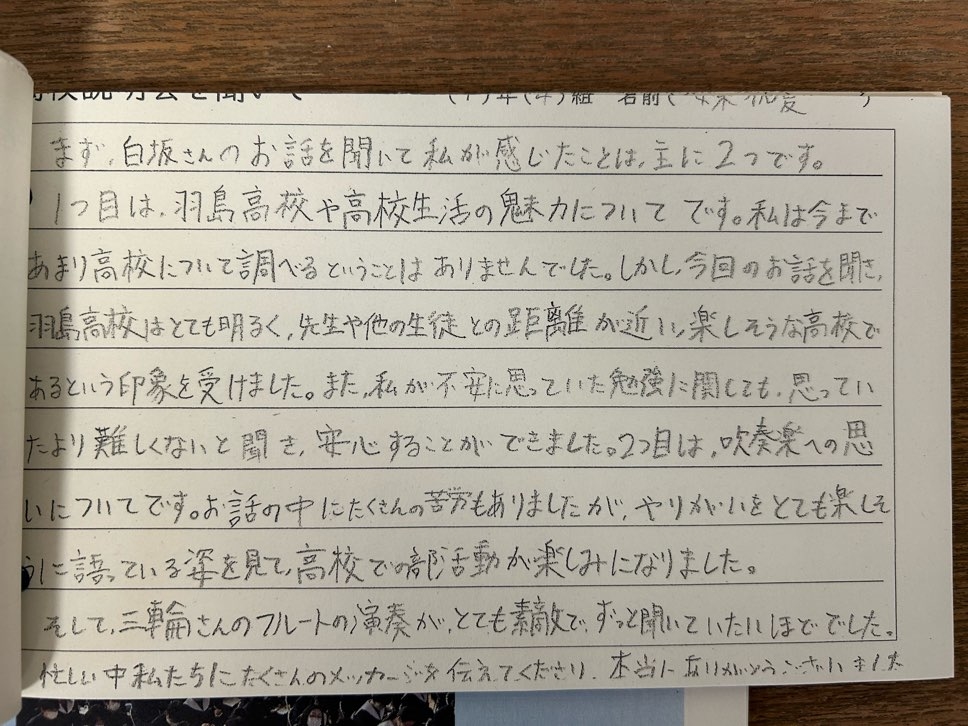 校説明会を聞いて (1)年(4)組 名前(
まず、白坂さんのお話を聞いて私が感じたことは、主に2つです。
1つ目は、羽島高校や高校生活の魅力についてです。私は今まで
あまり高校について調べるということはありませんでした。しかし、今回のお話を聞き、
羽島高校はとても明るく、先生や他の生徒との距離が近い、楽しそうな高校で
あるという印象を受けました。また、私が不安に思っていた勉強に関しても、思ってい
たより難しくないと聞き、安心することができました。2つ目は、吹奏楽への思
いについてです。お話の中にたくさんの苦労もありましたが、やりがいをとても楽しそ
うに語っている姿を見て、高校での部活動が楽しみになりました。
そして、三輪さんのフルートの演奏が、とても素敵で、ずっと聞いていたいほどでした。
忙しい中私たちにたくさんのメッセージを伝えてくださり、本当にありがとうございました